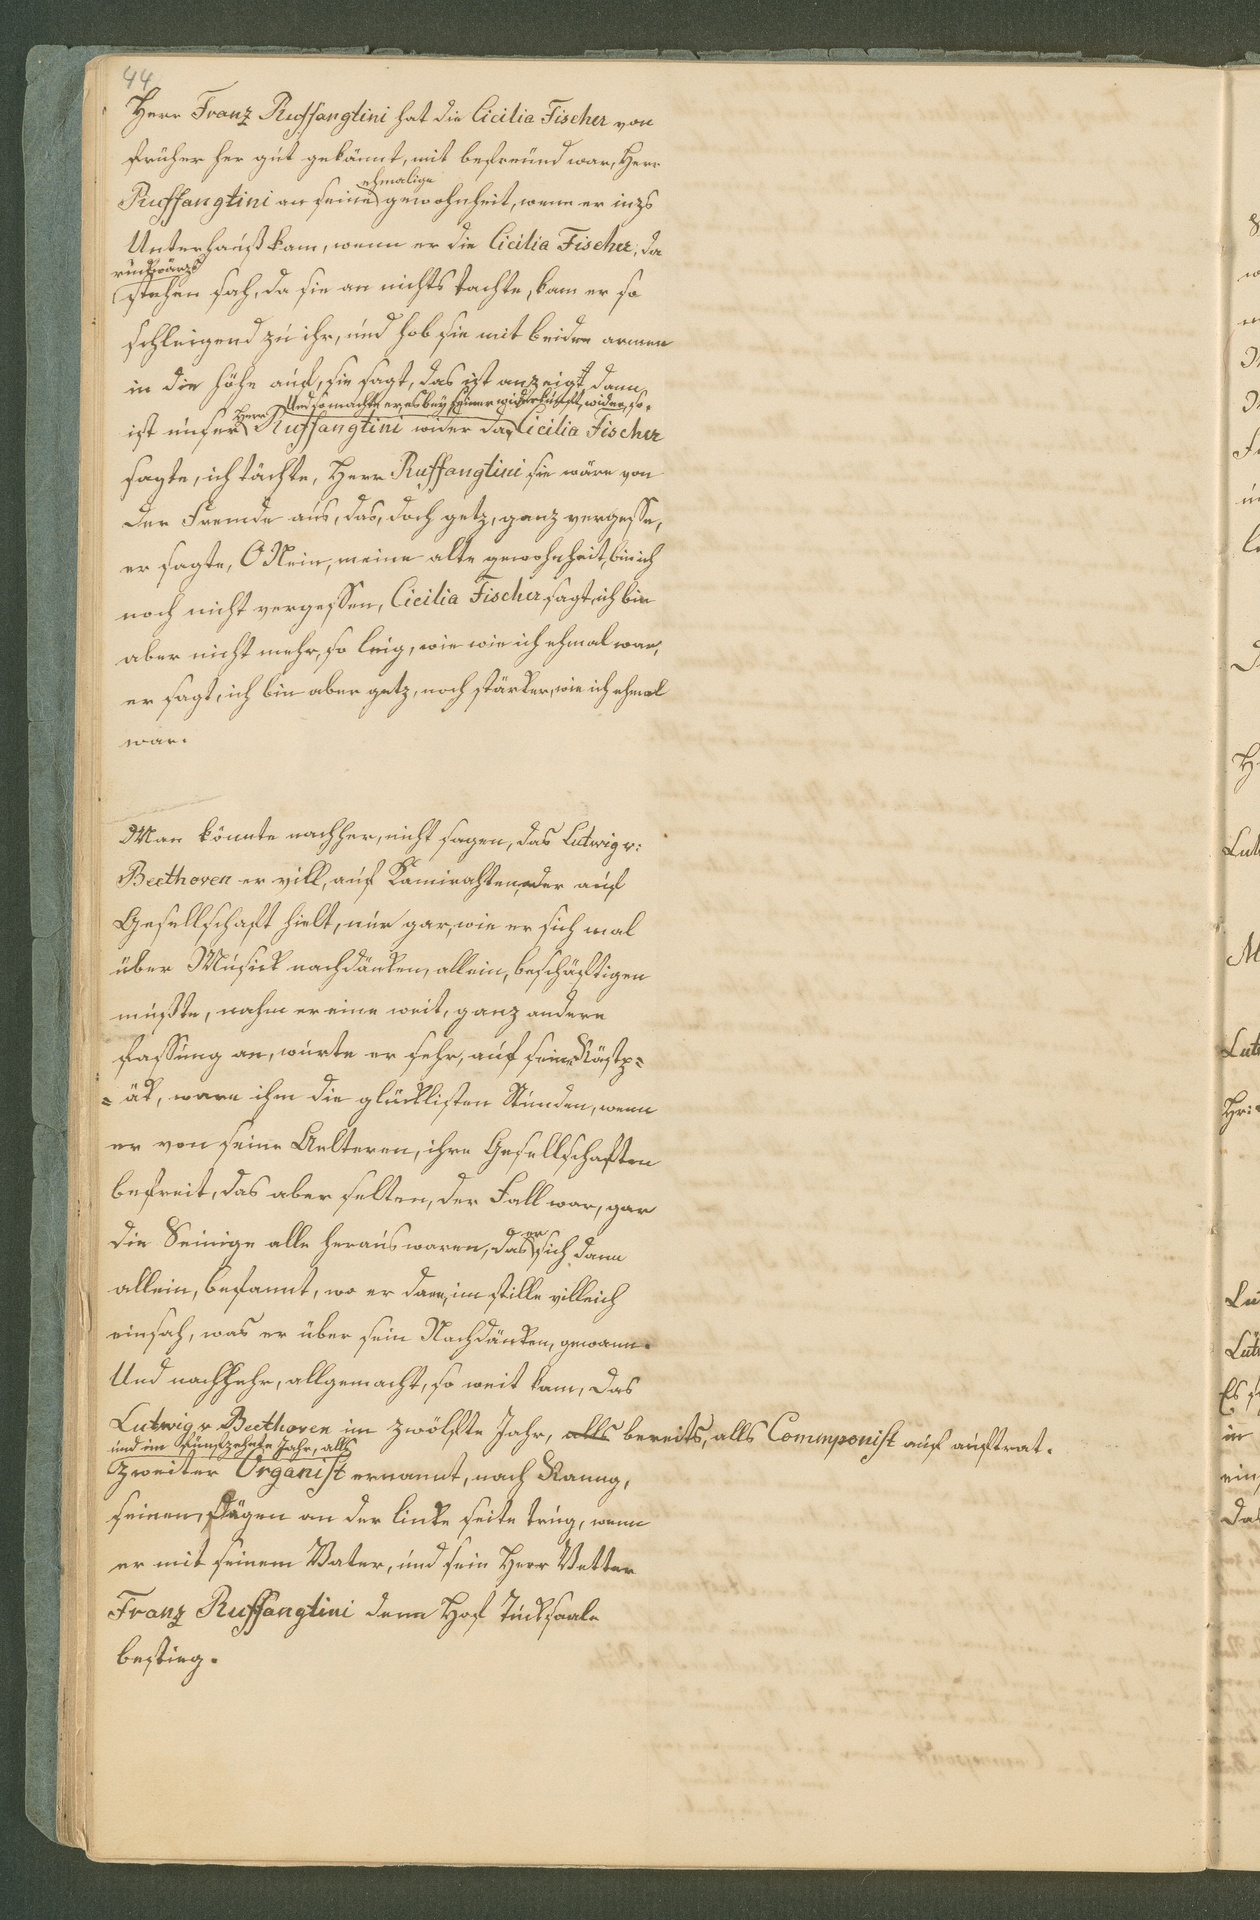 44
Herr Franz Ruffangtini hat die Cicilia Fischer von
früher her gut gekännt, mit befreünd war, Herr
ehmalige
Ruffangtini an seine gewohnheit, wenn er inzs
Unterhauß kam, wenn er die Cicilia Fischer, da
rückwärz
stehen sah, da sie an nichts dachte, kam er so
schleigend zu ihr, und hob sie mit beiden armen
in die höhe auf, sie sagt, das ist anzeigt, dann
Und so machte er, es bey seiner widerkunft, wider, so.
Herr
ist unser Ruffangtini wider da, Cicilia Fischer
sagte, ich tächte, Herr Ruffangtini sie wäre von
der Fremde aus, das, doch getz, ganz vergesse,
er sagte, O Nein, meine alte gewohnheit, bin ich
noch nicht vergessen, Cicilia Fischer sagt, ich bin
aber nicht mehr, so leig, wie wie ich ehmal war,
er sagt, ich bin aber getz, noch stärker, wie ich ehmal
war.
Man könnte nachher, nicht sagen, das Lutwig v:
Beethoven er vill, auf Kamirahten, oder auf
Gesellschaft hielt, nur gar, wie er sich mal
über Musick nachdänken, allein, beschäftigen
mußte, nahm er eine weit, ganz andere
fassung an, wurte er sehr, auf seine Rästp=
=äk, ware ihm die glücklisten Stunden, wenn
er von seine Aelteren, ihre Gesellschaften
befreit, das aber selten, der Fall war, gar
er
die Seinige alle heraus waren, das sich dann
allein, befannt, wo er dann, im stille villeich
einsah, was er über sein Nachdänken, gewann.
Und nachhehr, allgemacht, so weit kam, das
Lutwig v Beethoven im zwölfte Jahr, alls bereits, alls Commponist auf auftrat.
und im Fünfzehnte Jahr, alls
zweiter Organist ernannt, nach Ranng,
seinen, Dägen an der linke seite trug, wenn
er mit seinem Vater, und sein Herr Vetter
Franz Ruffangtini denn Hof Tucksaale
bestieg.